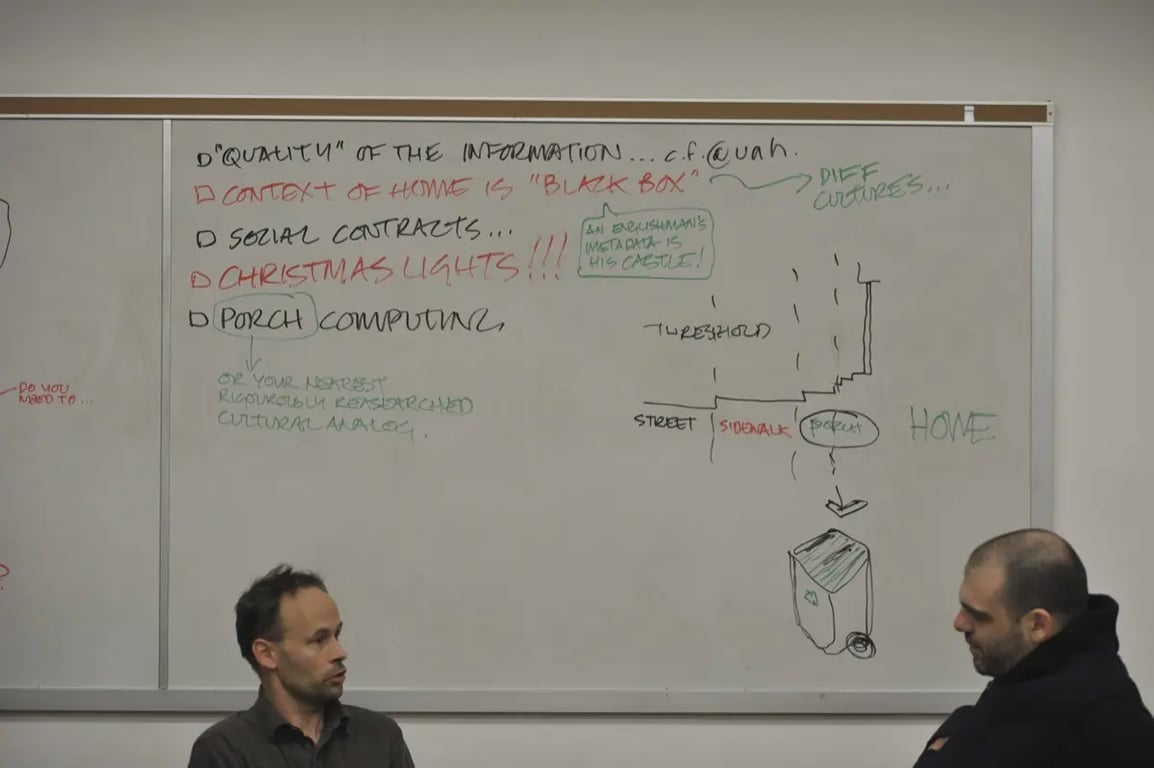 "QUALITY" OF THE INFORMATION... c.f. @uah.
CONTEXT OF HOME IS "BLACK BOX"
DIFF
CULTURES...
SOCIAL CONTRACTS...
AN ENGLISHMAN'S
METADATA IS
HIS CASTLE!
CHRISTMAS LIGHTS!!!
PORCH COMPUTING
OR YOUR NEAREST
RIGOUROUSLY REASEARCHED
CULTURAL ANALOG.
DO YOU
NEED TO...
THRESHOLD
STREET
SIDEWALK
PORCH
HOME
?